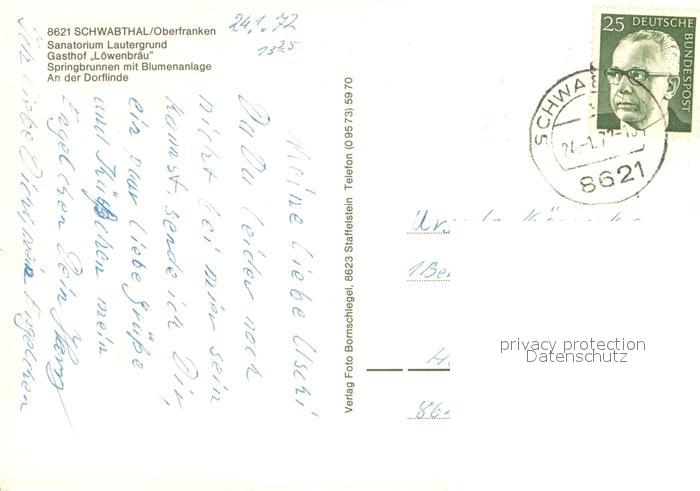 8621 SCHWABTHAL/Oberfranken
Sanatorium Lautergrund
Gasthof „Löwenbräu"
Springbrunnen mit Blumenanlage
An der Dorflinde
24.1.72
13 25
Meine liebe Uschi
Da Du leider noch
nicht bei mir sein
kannst, sende ich Dir,
ein paar liebe Grüße
und Küßchen mein
Engelchen Dein
Ich liebe Dich mein Engelchen
Verlag Foto Bornschlegel, 8623 Staffelstein Telefon (09573) 5970
25 DEUTSCHE
BUNDESPOST
SCHWA
24.-1.72-
8621
1Be
86
privacy protection
Datenschutz